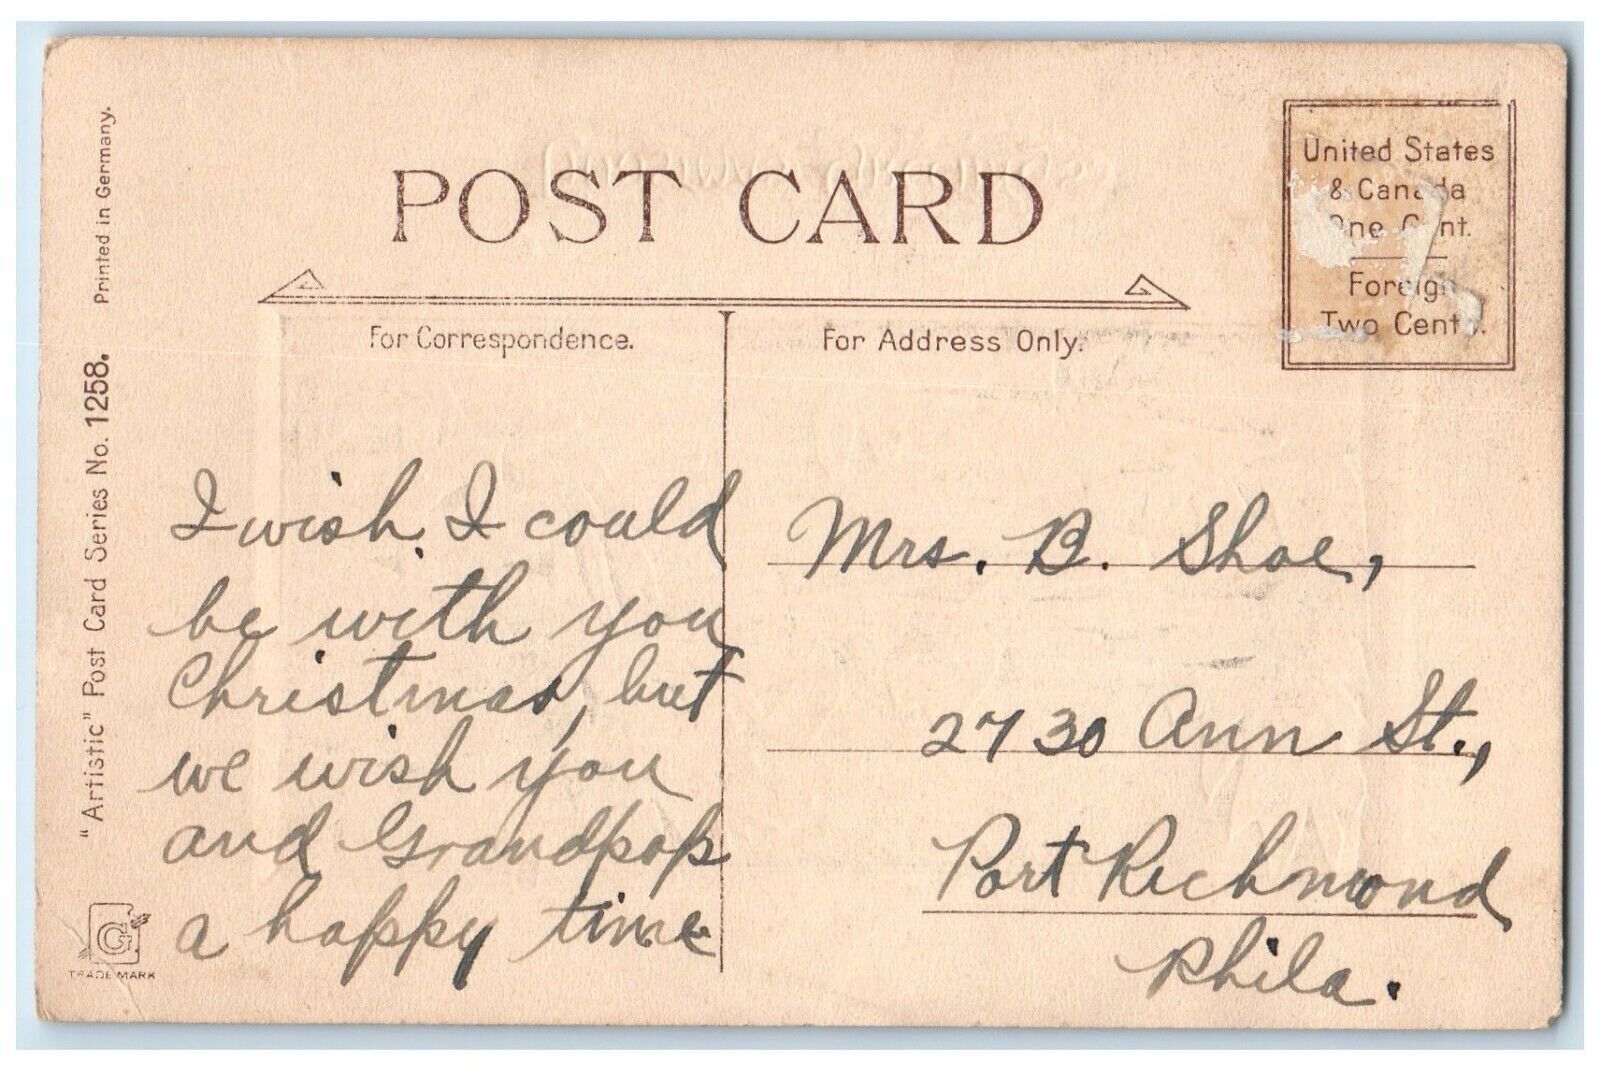 POST CARD
United States
& Canada
One Cent.
Foreign
Two Cents.
For Correspondence.
For Address Only.
I wish, I could
be with you
Christmas, but
we wish you
and Grandpop
a happy time
Mrs. B. Shoe,
2730 Ann St.,
Port Richmond
Phila.
"Artistic" Post Card Series No. 1258. Printed in Germany.
G
TRADE MARK